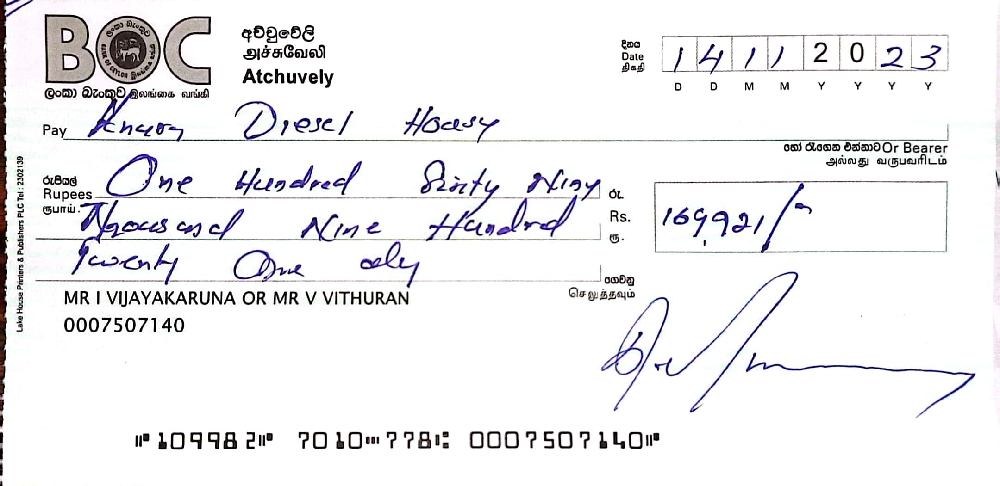 BOC
ලංකා බැංකුව இலங்கை வங்கி
අච්චුවේලි
அச்சுவேலி
Atchuvely
දිනය
Date
திகதி
1 4 1 1 2 0 2 3
D D M M Y Y Y Y
Pay Diesel Housy
හෝ රැගෙන එන්නාට Or Bearer
அல்லது வருபவரிடம்
රුපියල්
Rupees
ரூபாய்.
One Hundred Sinty Niny
Thousand Nine Hundred
Twenty One oly
රු.
Rs.
ரூ.
169,921/-
ගෙවනු
செலுத்தவும்
MR I VIJAYAKARUNA OR MR V VITHURAN
0007507140
Lake House Printers & Publishers PLC Tel : 2302139
⑈109982⑈ 7010⑉778⑆ 0007507140⑈